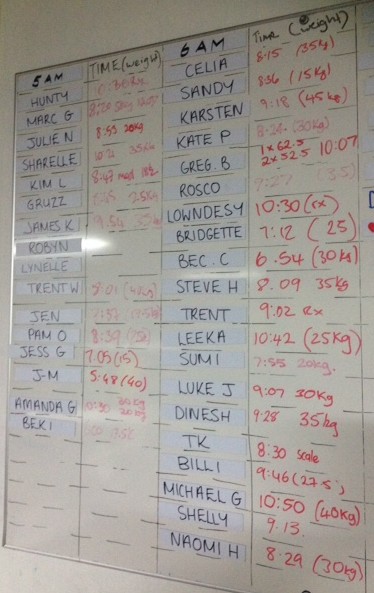 5 AM TIME (weight)
HUNTY 10:30 Rx
MARC G
JULIE N 8:55 20kg
SHARELLE 35kg
KIM L 8:47
GRUZZ 25kg
JAMES K 9:54
ROBYN
LYNELLE
TRENT W 8:01
JEN
PAM O 8:39
JESS G 7.05 (15)
J-M 5:48 (40)
AMANDA G 10:30 20kg
BEK I
6 AM TIME (weight)
CELIA 8:15 (35kg)
SANDY 8:36 (15kg)
KARSTEN 9:18 (45kg)
KATE P 8:24 (30kg)
GREG. B 1 x 62.5 2 x 52.5 10:07
ROSCO 9:27 35
LOWNDESY 10:30 (rx)
BRIDGETTE 7:12 (25)
BEC. C 6.54 (30kg)
STEVE H 8.09 35kg
TRENT 9:02 Rx
LEEKA 10:42 (25kg)
SUMI 7:55 20kg.
LUKE J 9:07 30kg
DINESH 9:28 35kg
TK 8:30 scale
BILLI 9:46 (27.5)
MICHAEL G 10:50 (40kg)
SHELLY 9.13.
NAOMI H 8:29 (30kg)